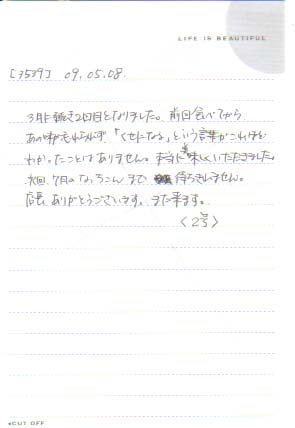 LIFE IS BEAUTIFUL
[3539] 09.05.08.
3月に続き2回目となりました。前回食べてから
あの味が忘れられず、「くせになる」という言葉がこれほど
わかったことはありません。本当に美味しくいただきました。
次回、7月のなっちこんまで 待ちきれません。
店長 ありがとうございます。また来ます。
〈2号〉
CUT OFF